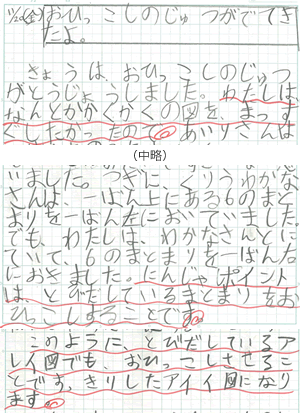 11/20(金) おひっこしのじゅつがでてき
たよ。
きょうは、おひっこしのじゅつ
がとうじょうしました。わたしは、
なんとかがくかくの図を、まっす
ぐしたかったので、あいりさんは
(中略)
いました。つぎに、くりうわかな
さんは、一ばん上にある6のまと
まりを一ばん左においていました。
でも、わたしは、わかなさんとに
ていて、6のまとまりを一ばん右
におきました。にんじゃポイント
は、とびだしているまとまりをお
ひっこしすることです。
このように、とびだしているア
レイ図でも、おひっこしさせるこ
とで、すっきりしたアレイ図になり
ます。